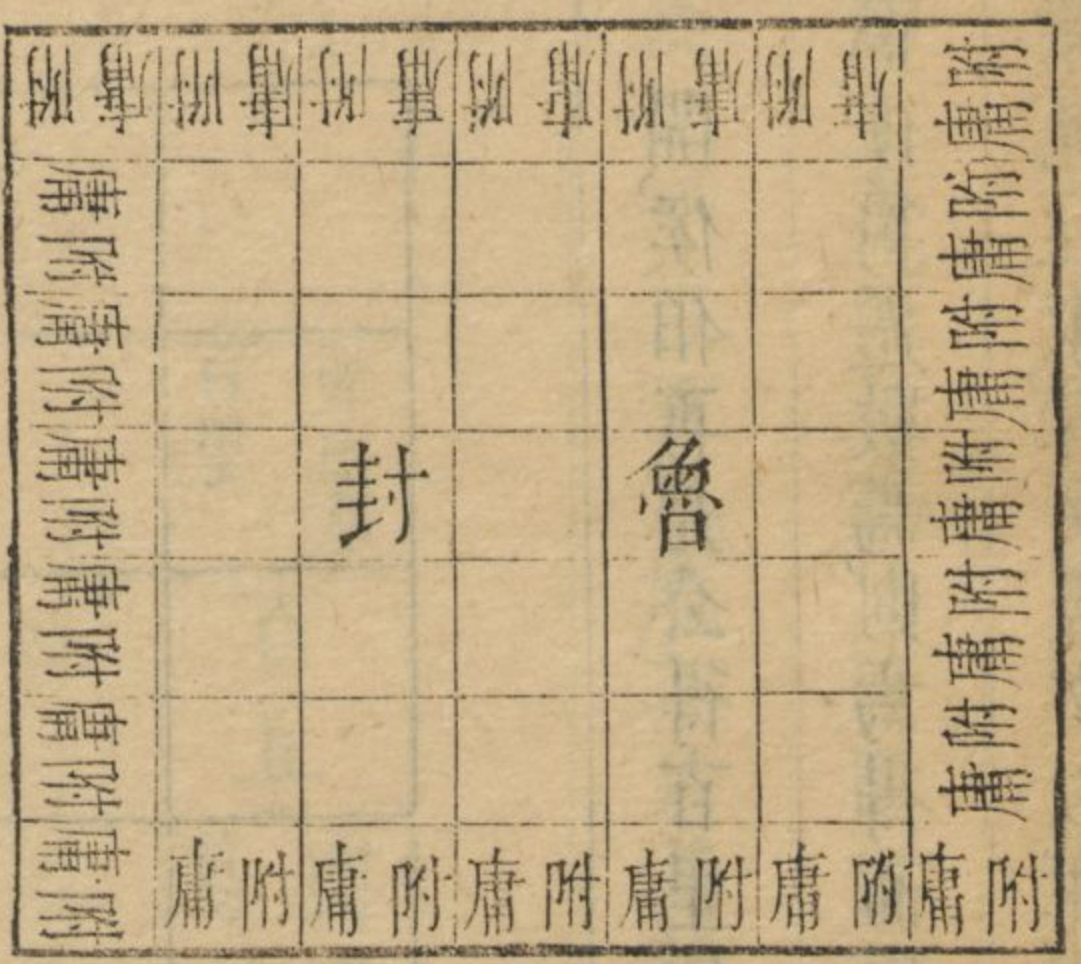 附庸附庸附庸附庸附庸附庸
附庸附庸附庸附庸附庸附庸
附庸附庸附庸附庸附庸附庸
附庸附庸附庸附庸附庸附庸
魯封